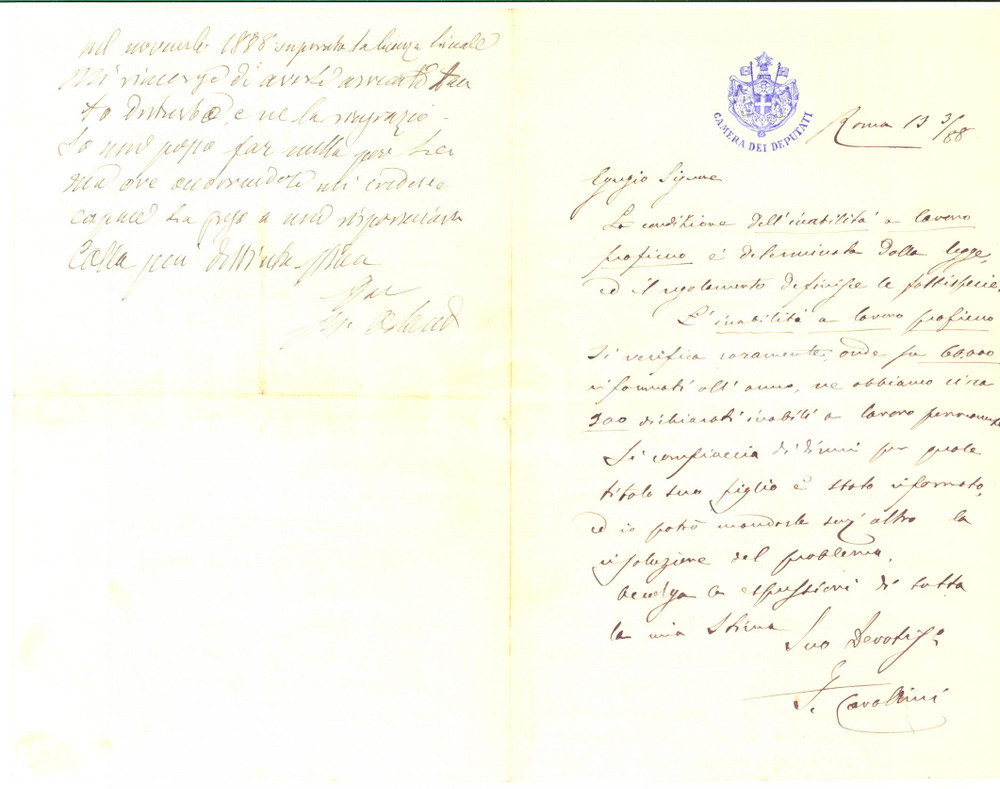 nel novembre 1888 superata la licenza liceale
Mi rincresce di averle arrecato tan
to disturbo, e ne la ringrazio -
Io non posso far nulla per Lei
ma ove occorrendole mi credesse
capace La prego a non risparmiarmi
Colla più distinta stima
CAMERA DEI DEPUTATI
Roma 13 3/88
Egregio Signore
La condizione dell'inabilità a lavoro
proficuo è determinata dalla legge,
ed il regolamento definisce le fattispecie.
L'inabilità a lavoro proficuo
si verifica raramente, onde su 60.000
riformati all'anno, ne abbiamo circa
300 dichiarati inabili a lavoro permanente
Si compiaccia di dirmi per quale
titolo suo figlio è stato riformato,
ed io potrò mandarle senz'altro la
risoluzione del problema.
Accolga le espressioni di tutta
la mia stima
Suo Devotiss.o
F. Cavallini